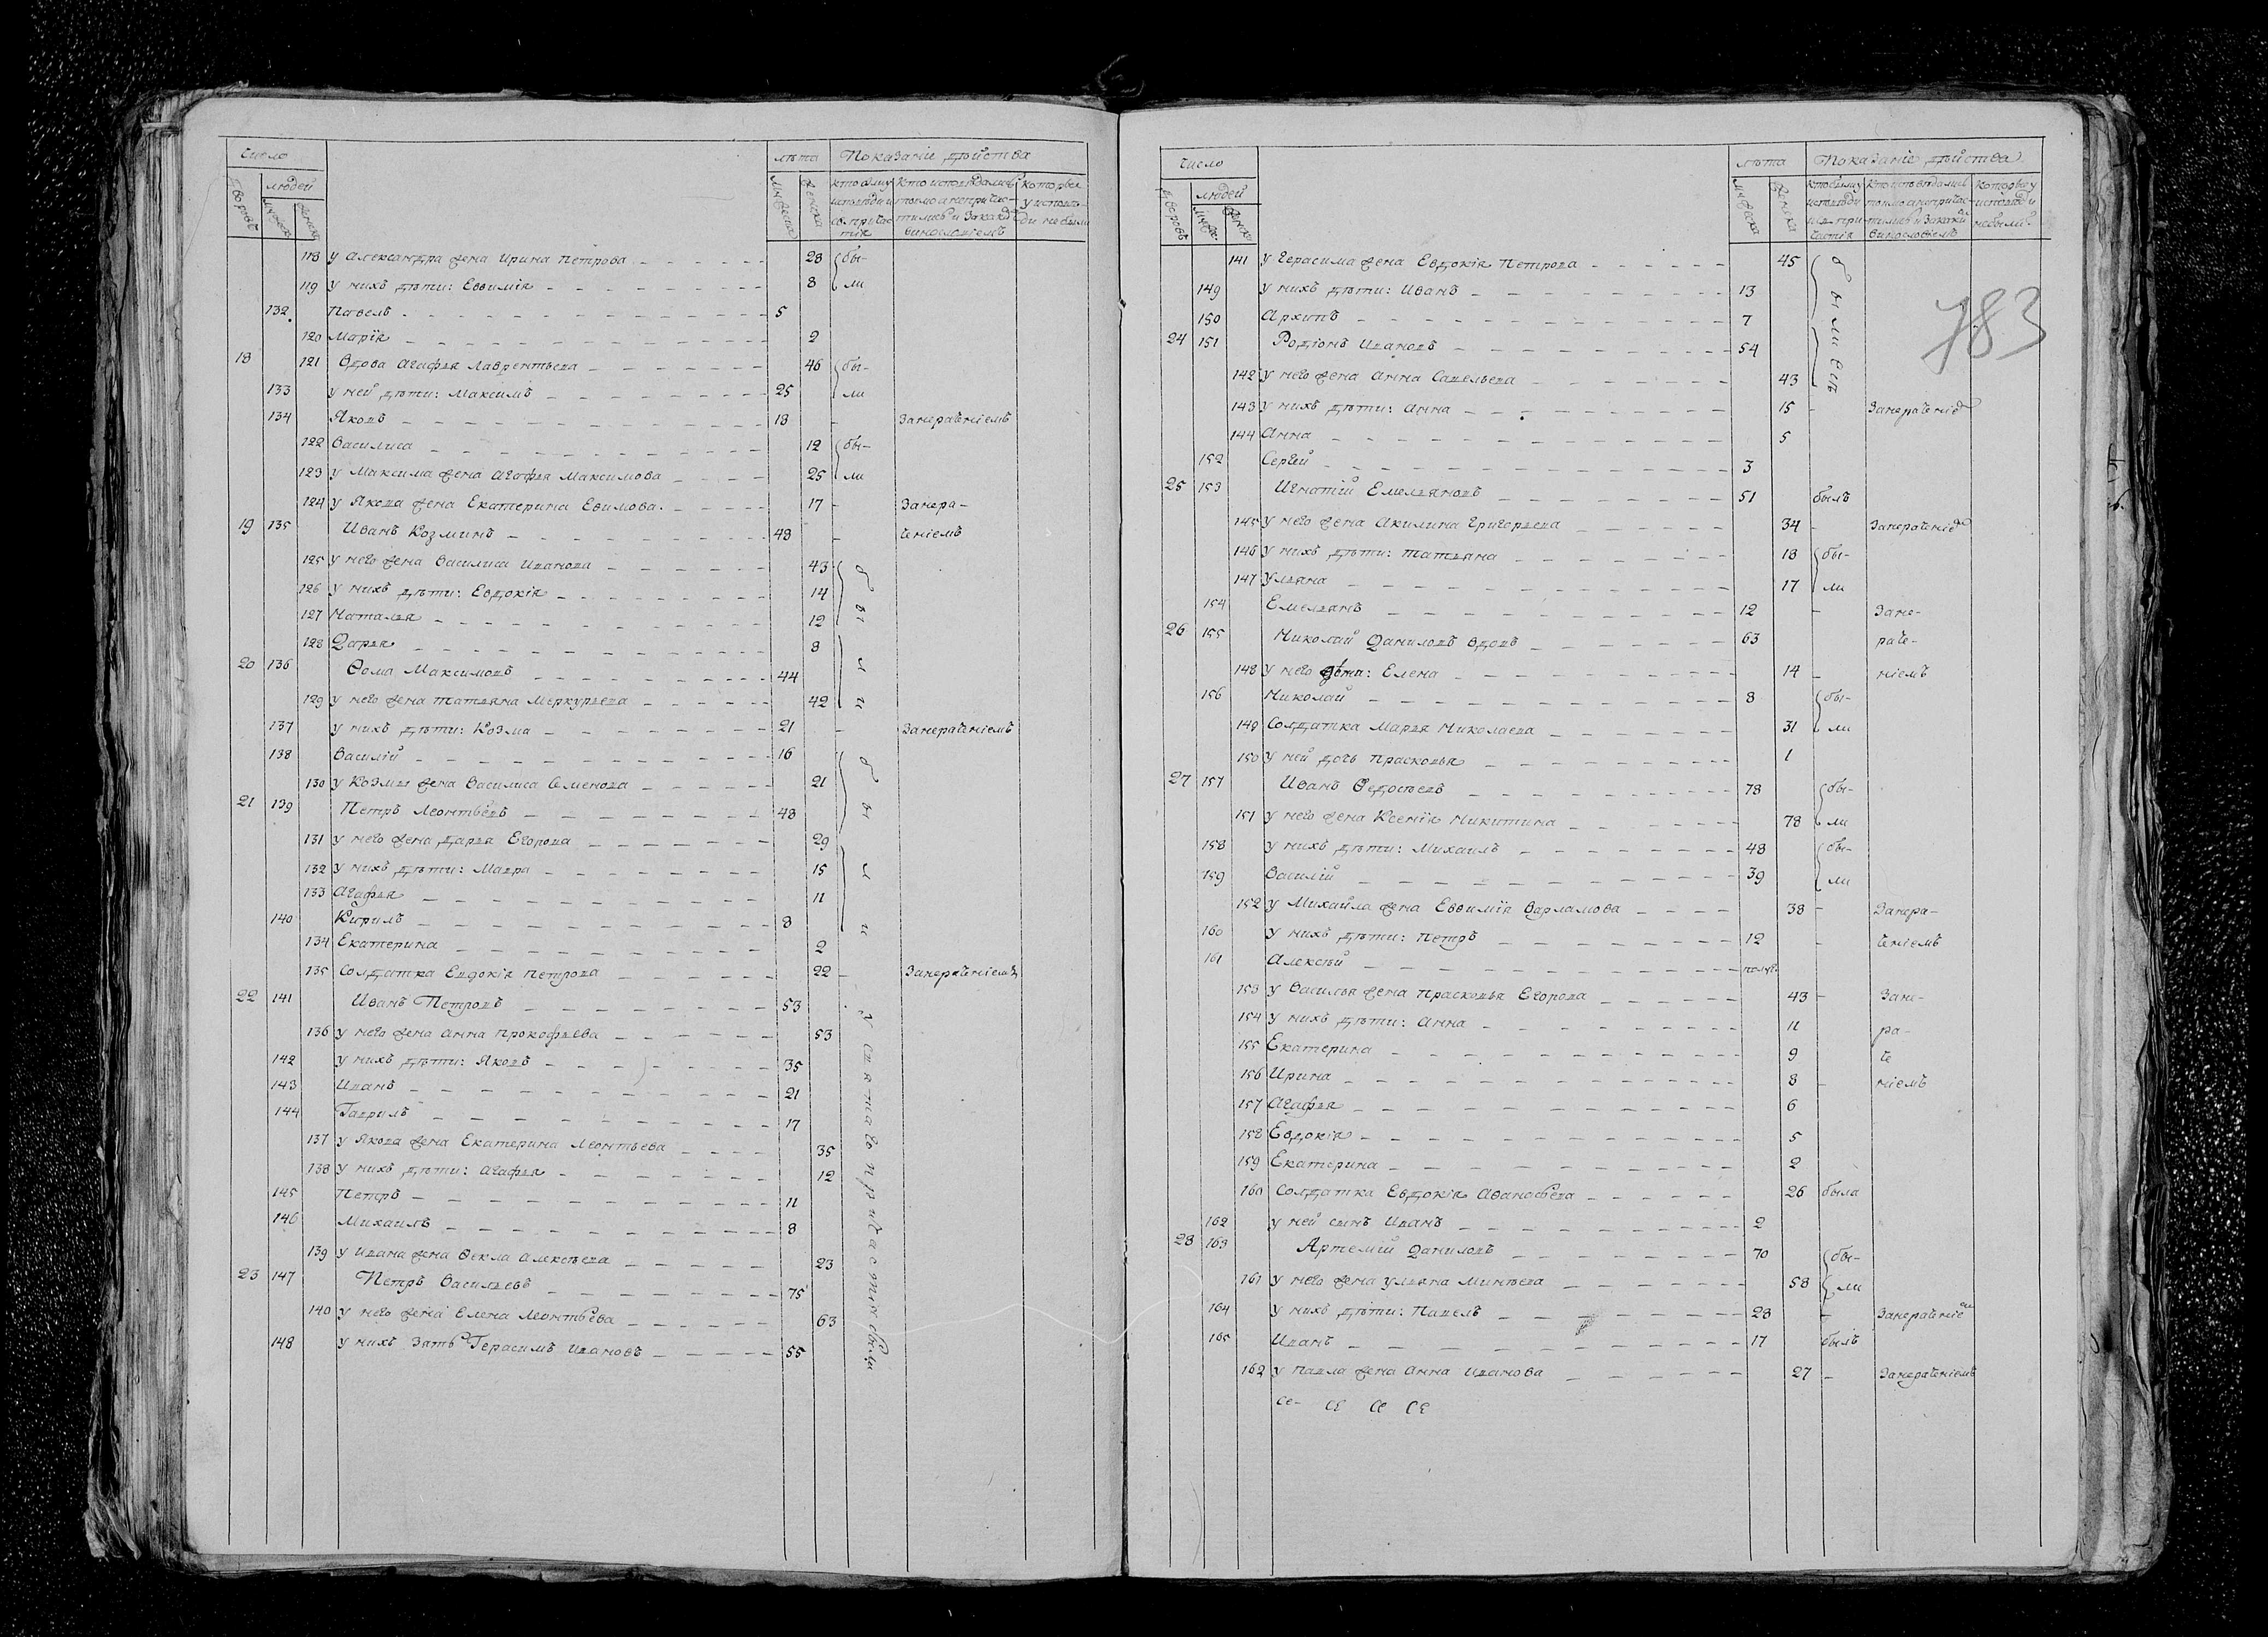 Число
лѣта Показаніе дѣйства
людей
Дворовъ мужеска женска мужеска женска кто были у исповѣди и св. причастія Кто исповѣдались токмо а не причастились и за какимъ винословіемъ которые у исповѣди не были
118 у Александра жена Ирина Петрова 28 бы-
119 у нихъ дѣти: Евѳимія 8 ли
132 Павелъ 5
120 Марія 2
18 121 Вдова Агафья Лаврентьева 46 бы-
133 у ней дѣти: Максимъ 25 ли
134 Яковъ 18 - занераченіемъ
122 Василиса 12 бы-
123 у Максима жена Агафья Максимова 25 ли
124 у Якова жена Екатерина Евимова 17 - Занера-
19 135 Иванъ Козминъ 48 - ченіемъ
125 у него жена Василиса Иванова 43 бы
126 у нихъ дѣти: Евдокія 14
127 Наталья 12
128 Дарья 8
20 136 Ѳома Максимовъ 44 ли
129 у него жена Татьяна Меркурьева 42
137 у нихъ дѣти: Козма 21 - занераченіемъ
138 Василій 16 были
130 у Козмы жена Василиса Семенова 21
21 139 Петръ Леонтьевъ 48
131 у него жена Дарья Егорова 29
132 у нихъ дѣти: Мавра 15
133 Агафья 11
140 Кирилъ 8
134 Екатерина 2
135 Солдатка Евдокія Петрова 22 - Занераченіемъ
22 141 Иванъ Петровъ 53 у святаго причастія были
136 у него жена Анна Прокофьева 53
142 у нихъ дѣти: Яковъ 35
143 Иванъ 21
144 Гаврилъ 17
137 у Якова жена Екатерина Леонтьева 35
138 у нихъ дѣти: Агафья 12
145 Петръ 11
146 Михаилъ 8
139 у Ивана жена Ѳекла Алексѣева 23
23 147 Петръ Васильевъ 75
140 у него жена Елена Леонтьева 63
148 у нихъ зять Герасимъ Ивановъ 55
Число
лѣта Показаніе дѣйства
людей
Дворовъ муже: женска мужеска женска кто были у исповѣди и св. причастія Кто исповѣдались токмо а не причастились и за какимъ винословіемъ которые у исповѣди не были
783
141 у Герасима жена Евдокія Петрова 45 были
149 у нихъ дѣти: Иванъ 13
150 Архипъ 7
24 151 Родіонъ Ивановъ 54
142 у него жена Анна Савельева 43
143 у нихъ дѣти: Анна 15 - Занераченіе
144 Анна 5
152 Сергей 3
25 153 Игнатій Емельяновъ 51 былъ
145 у него жена Акилина Григорьева 34 - Занераченіе
146 у нихъ дѣти: Татьяна 18 бы-
147 Ульяна 17 ли
154 Емельянъ 12 - Зане-
26 155 Николай Даниловъ вдовъ 63 раче-
148 у него дѣти: Елена 14 - ніемъ
156 Николай 8 бы-
149 Солдатка Марья Николаева 31 ли
150 у ней дочь Прасковья 1
27 157 Иванъ Ѳедосѣевъ 78 бы-
151 у него жена Ксенія Никитина 78 ли
158 у нихъ дѣти: Михаилъ 48 бы-
159 Василій 39 ли
152 у Михайла жена Евѳимія Варламова 38 - Занера-
160 у нихъ дѣти: Петръ 12 - ченіемъ
161 Алексѣй полуг.
153 у Василья жена Прасковья Егорова 43 - Зане-
154 у нихъ дѣти: Анна 11 ра-
155 Екатерина 9 че
156 Ирина 8 - ніемъ
157 Агафья 6
158 Евдокія 5
159 Екатерина 2
160 Солдатка Евдокія Аѳанасьева 26 была
162 у ней сынъ Иванъ 2
28 163 Артемій Даниловъ 70 бы-
161 у него жена Ульяна Минѣева 58 ли
164 у нихъ дѣти: Павелъ 28 - Занераченіе
165 Иванъ 17 былъ
162 у Павла жена Анна Иванова 27 - Занераченіемъ